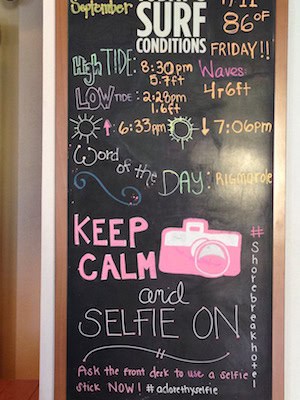 September
SURF
CONDITIONS
86°F
FRIDAY!!
High TIDE: 8:30pm
5.7ft
Waves:
4-6ft
LOW TIDE: 2:28pm
1.6ft
↑: 6:33pm
↓ 7:06pm
Word of the
DAY: Rigmarole
KEEP
CALM
and
SELFIE ON
#Shorebreakhotel
Ask the front desk to use a selfie
stick NOW! #adorethyselfie